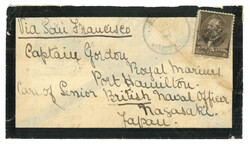 Via San Francisco
Captain Gordon
Royal Marines
Port Hamilton.
Care of Senior British Naval Officer
Nagasaki
Japan.